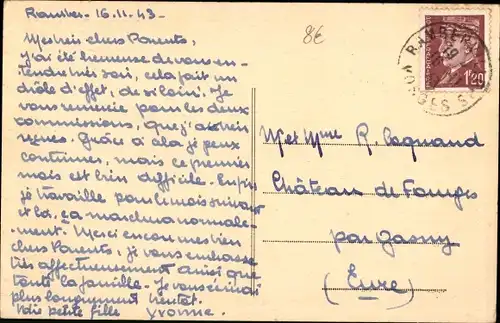 Rambes - 16.11.43 -
Mes très chers Parents,
J'ai été heureuse de vous en-
tendre très soir, cela fait un
drôle d'effet, de si loin! Je
vous remercie pour les deux
commissions, que j'ai bien
reçues. Grâce à cela je peux
continuer, mais ce premier
mois est bien difficile. Enfin
je travaille pour le mois suivant
et là, ça marchera normale-
ment. Merci encore mes bien
chers Parents, je vous embrasse
très affectueusement ainsi que
toute la famille. Je vous écrirai
plus longuement bientôt.
Votre petite fille Yvonne.
8€
RAMBER
VOSGES
1F20
M et Mme R.
Château de
par Gasny
(Eure)